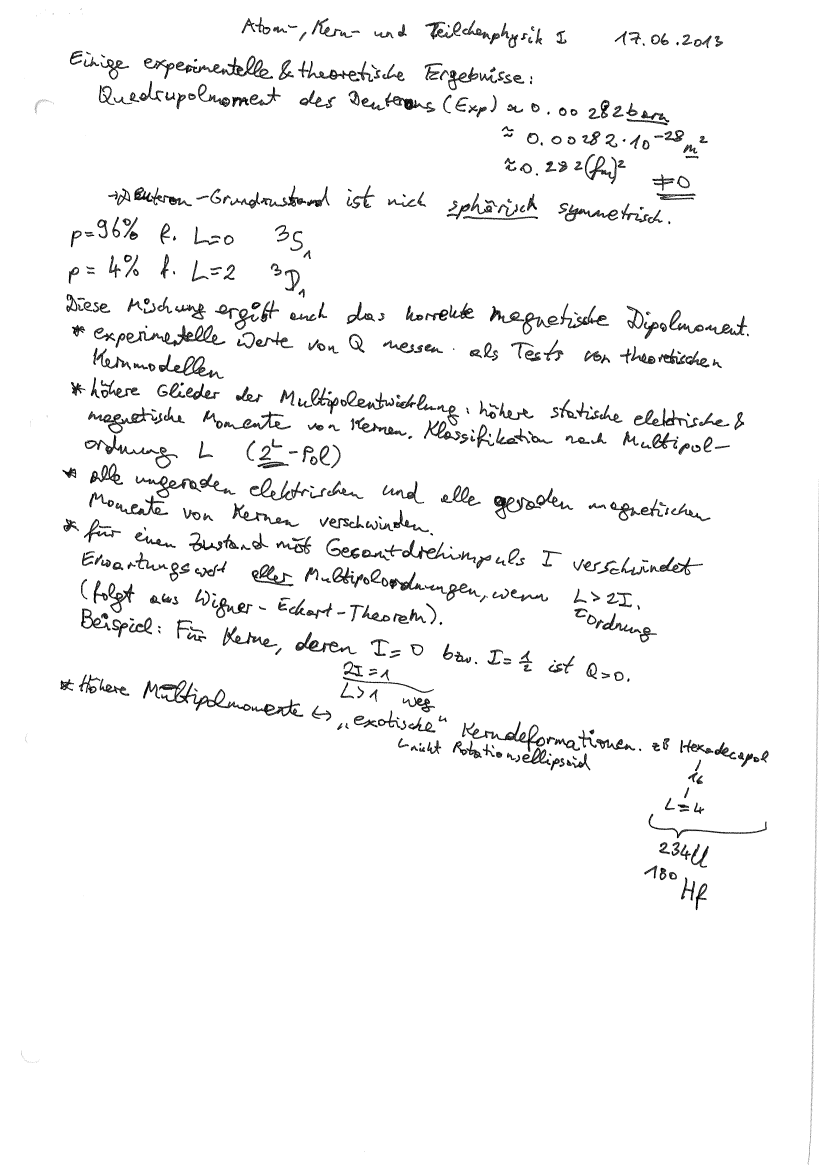 Atom-, Kern- und Teilchenphysik I 17.06.2013
Einige experimentelle & theoretische Ergebnisse:
Quadrupolmoment des Deuterons (Exp) ≈ 0.00282 barn
≈ 0.00282·10⁻²⁸ m²
≈ 0.282 (fm)² ≠0
→ Deuteron-Grundzustand ist nich sphärisch symmetrisch.
p=96% f. L=0 ³S₁
p= 4% f. L=2 ³D₁
Diese Mischung ergibt auch das korrekte magnetische Dipolmoment.
* experimentelle Werte von Q messen. als Tests von theoretischen
Kernmodellen
* höhere Glieder der Multipolentwicklung: höhere statische elektrische &
magnetische Momente von Kernen. Klassifikation nach Multipol-
ordnung L (2ᴸ-Pol)
* alle ungeraden elektrischen und alle geraden magnetischen
Momente von Kernen verschwinden.
* für einen Zustand mit Gesamtdrehimpuls I verschwindet
Erwartungswert aller Multipolordnungen, wenn L>2I.
(folgt aus Wigner-Eckart-Theorem). Ordnung
Beispiel: Für Kerne, deren I=0 bzw. I=½ ist Q=0.
2I=1
L>1 weg
* Höhere Multipolmomente ↔ „exotische" Kerndeformationen. zB Hexadecapol
nicht Rotationsellipsoid
16
L=4
²³⁴U
¹⁸⁰Hf